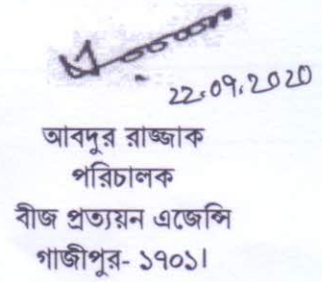 22.09.2020
আবদুর রাজ্জাক
পরিচালক
বীজ প্রত্যয়ন এজেন্সি
গাজীপুর- ১৭০১।